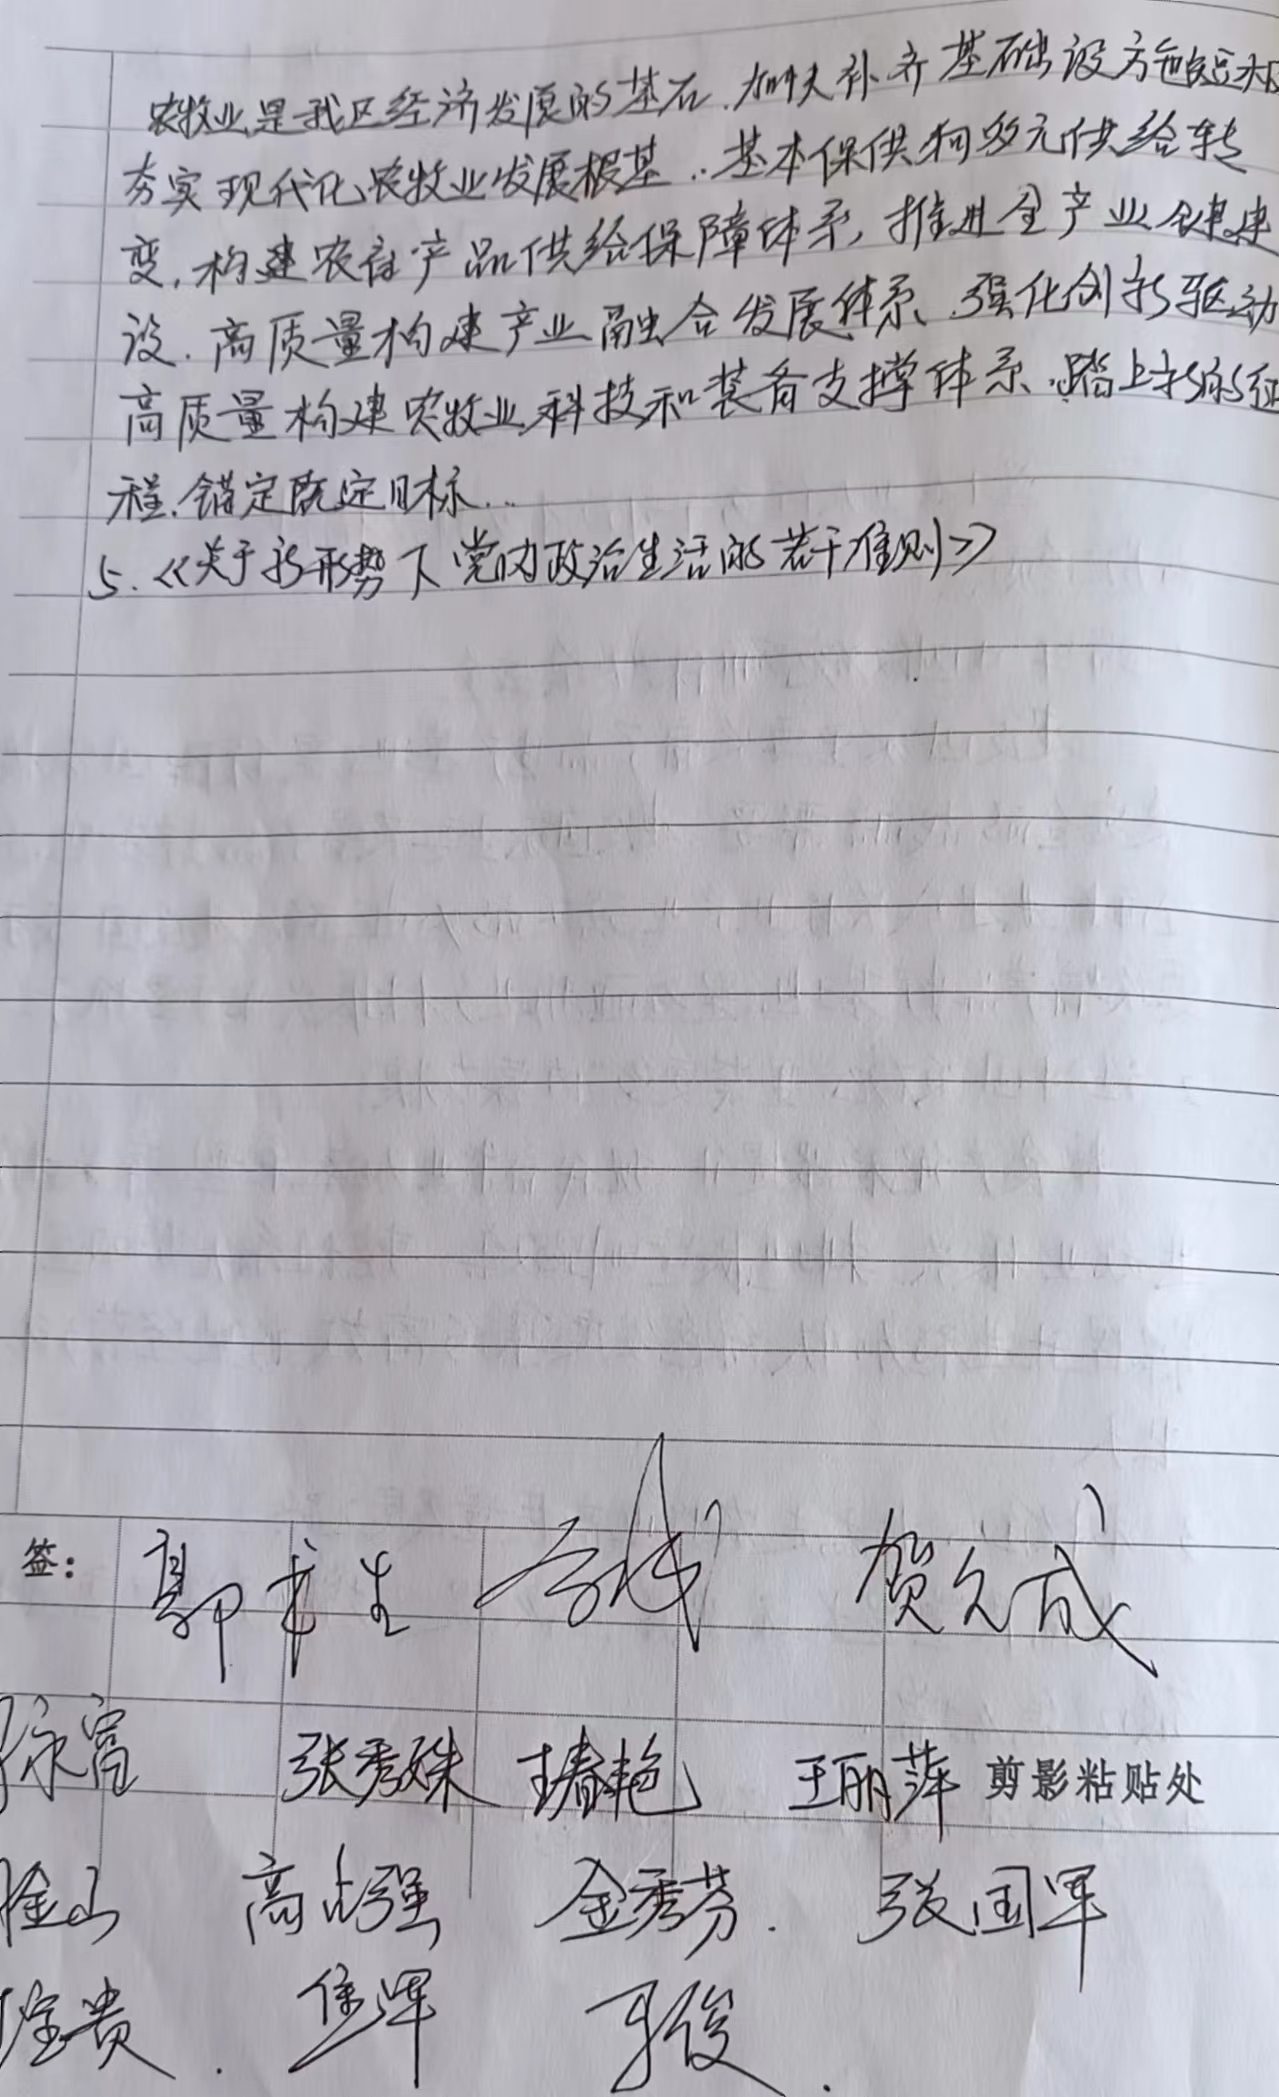 农牧业是我区经济发展的基石.加快补齐基础设施短板
夯实现代化农牧业发展根基..基本保供向多元供给转
变.构建农畜产品供给保障体系,推进全产业链建
设.高质量构建产业融合发展体系.强化创新驱动
高质量构建农牧业科技和装备支撑体系.踏上新的征
程.锚定既定目标...
5.《关于新形势下党内政治生活的若干准则》
签: 郭 生 贺 成
永富 张秀姝 王春艳 王丽萍 剪影粘贴处
金山 高占强 金秀芬. 张国军
宝贵. 军 俊.